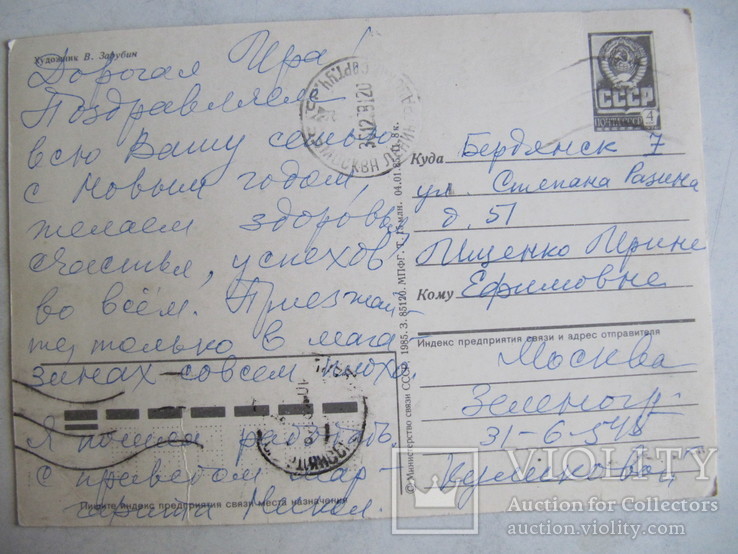 Художник В. Зарубин
Дорогая Ира!
Поздравляем
всю Вашу семью
с Новым годом,
желаем здоровья
счастья, успехов
во всём. Приезжай-
те, только в мага-
зинах совсем плохо.
Я пошла работать.
с приветом Мар-
гарита Никол.
Пишите индекс предприятия связи места назначения
© Министерство связи СССР. 1985. З. 85120. МПФГ. Т. Гознак. 04.01.85. Ц. 8к.
СССР
ПОЧТА
4
МОСКВА
Куда Бердянск 7
ул. Степана Разина
д. 51
Ищенко Ирине
Кому Ефимовне
Индекс предприятия связи и адрес отправителя
Москва
Зеленогр.
31-6-548
Куликова
VIOLITY
Auction for Collectors
auction.violity.com